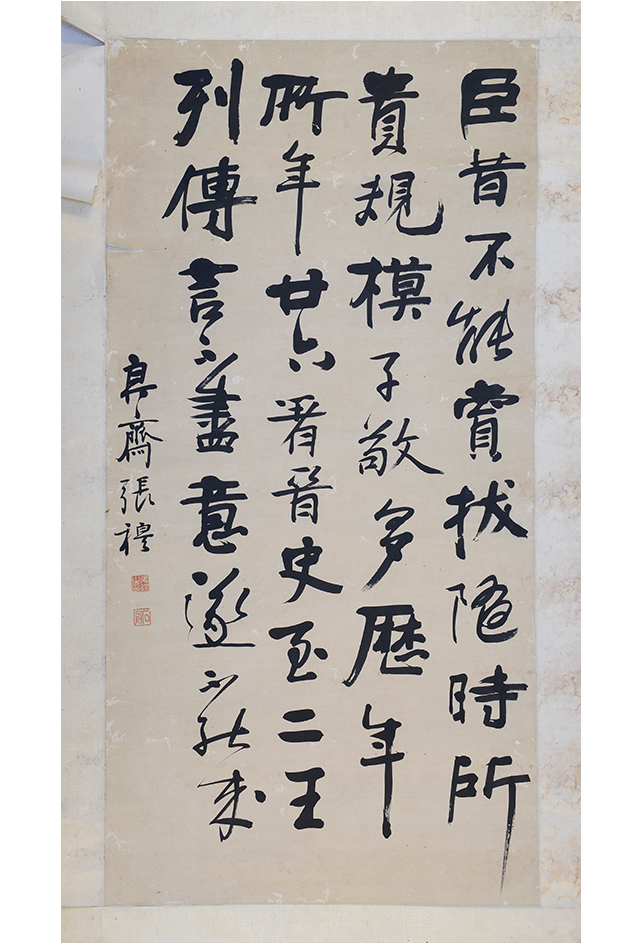 臣昔不能賞拔隨時所
貴規模子敬多歷年
所年廿六著晉史至二王
列傳言不盡意遂不能成
齋張穆